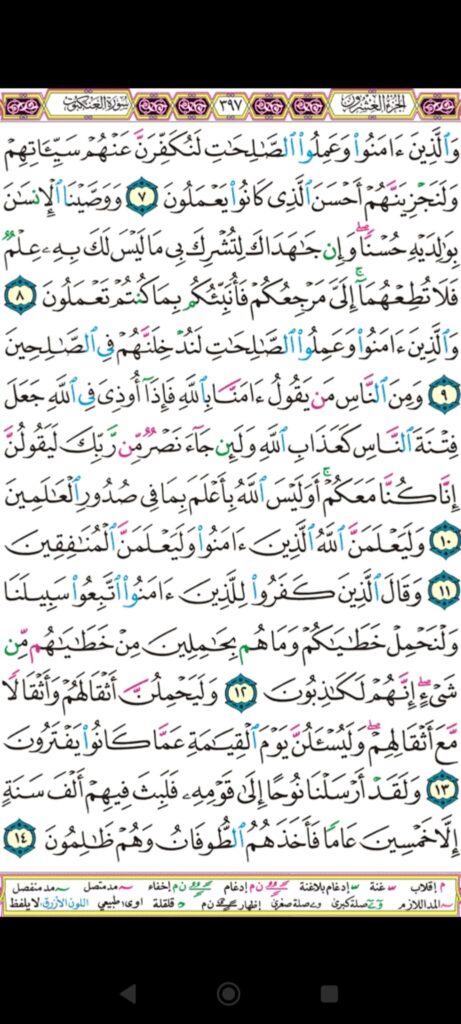 الجزء العشرون ٣٩٧ سورة العنكبوت
وَالَّذِينَ ءَامَنُوا وَعَمِلُوا الصَّـٰلِحَـٰتِ لَنُكَفِّرَنَّ عَنْهُمْ سَيِّـَٔاتِهِمْ
وَلَنَجْزِيَنَّهُمْ أَحْسَنَ الَّذِى كَانُوا يَعْمَلُونَ ٧ وَوَصَّيْنَا الْإِنسَـٰنَ
بِوَٰلِدَيْهِ حُسْنًا ۖ وَإِن جَـٰهَدَاكَ لِتُشْرِكَ بِى مَا لَيْسَ لَكَ بِهِۦ عِلْمٌ
فَلَا تُطِعْهُمَآ ۚ إِلَىَّ مَرْجِعُكُمْ فَأُنَبِّئُكُم بِمَا كُنتُمْ تَعْمَلُونَ ٨
وَالَّذِينَ ءَامَنُوا وَعَمِلُوا الصَّـٰلِحَـٰتِ لَنُدْخِلَنَّهُمْ فِى الصَّـٰلِحِينَ
٩ وَمِنَ النَّاسِ مَن يَقُولُ ءَامَنَّا بِاللَّهِ فَإِذَآ أُوذِىَ فِى اللَّهِ جَعَلَ
فِتْنَةَ النَّاسِ كَعَذَابِ اللَّهِ وَلَئِن جَآءَ نَصْرٌ مِّن رَّبِّكَ لَيَقُولُنَّ
إِنَّا كُنَّا مَعَكُمْ ۚ أَوَلَيْسَ اللَّهُ بِأَعْلَمَ بِمَا فِى صُدُورِ الْعَـٰلَمِينَ
١٠ وَلَيَعْلَمَنَّ اللَّهُ الَّذِينَ ءَامَنُوا وَلَيَعْلَمَنَّ الْمُنَـٰفِقِينَ
١١ وَقَالَ الَّذِينَ كَفَرُوا لِلَّذِينَ ءَامَنُوا اتَّبِعُوا سَبِيلَنَا
وَلْنَحْمِلْ خَطَـٰيَـٰكُمْ وَمَا هُم بِحَـٰمِلِينَ مِنْ خَطَـٰيَـٰهُم مِّن
شَىْءٍ ۖ إِنَّهُمْ لَكَـٰذِبُونَ ١٢ وَلَيَحْمِلُنَّ أَثْقَالَهُمْ وَأَثْقَالًا
مَّعَ أَثْقَالِهِمْ ۖ وَلَيُسْـَٔلُنَّ يَوْمَ الْقِيَـٰمَةِ عَمَّا كَانُوا يَفْتَرُونَ
١٣ وَلَقَدْ أَرْسَلْنَا نُوحًا إِلَىٰ قَوْمِهِۦ فَلَبِثَ فِيهِمْ أَلْفَ سَنَةٍ
إِلَّا خَمْسِينَ عَامًا فَأَخَذَهُمُ الطُّوفَانُ وَهُمْ ظَـٰلِمُونَ ١٤
م إقلاب غنة إدغام بلاغنة ن م إدغام ن م إخفاء مد متصل مد منفصل
المد اللازم صلة كبرى صلة صغرى إظهار ن م قلقلة اوى: طبيعي اللون الأزرق: لا يلفظ